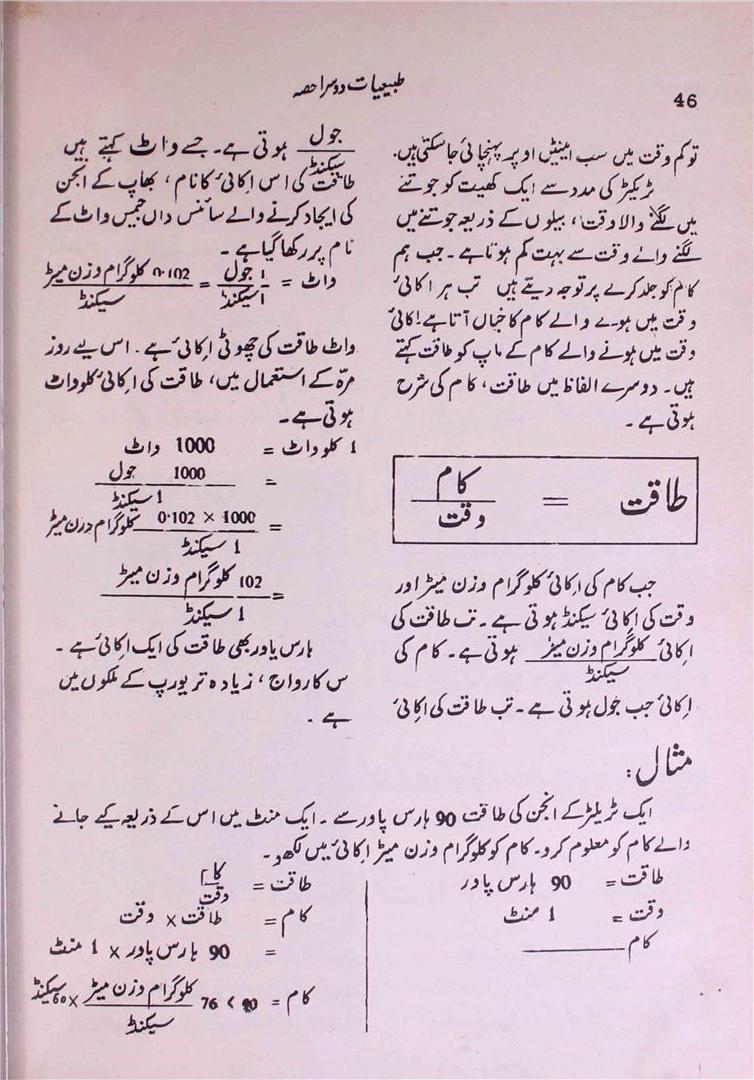 46
طبیعیات دوسرا حصہ
تو کم وقت میں سب اینٹیں اوپر پہنچائی جاسکتی ہیں۔
ٹریکٹر کی مدد سے ایک کھیت کو جوتنے
میں لگنے والا وقت، بیلوں کے ذریعہ جوتنے میں
لگنے والے وقت سے بہت کم ہوتا ہے۔ جب ہم
کام کو جلد کرنے پر توجہ دیتے ہیں تب ہر اکائی
وقت میں ہونے والے کام کا خیال آتا ہے! اکائی
وقت میں ہونے والے کام کے ماپ کو طاقت کہتے
ہیں۔ دوسرے الفاظ میں طاقت، کام کی شرح
ہوتی ہے۔
طاقت = کام / وقت
جب کام کی اکائی کلوگرام وزن میٹر اور
وقت کی اکائی سیکنڈ ہوتی ہے۔ تب طاقت کی
اکائی کلوگرام وزن میٹر / سیکنڈ ہوتی ہے۔ کام کی
اکائی جب جول ہوتی ہے۔ تب طاقت کی اکائی
جول / سیکنڈ ہوتی ہے۔ جسے واٹ کہتے ہیں
طاقت کی اس اکائی کا نام، بھاپ کے انجن
کی ایجاد کرنے والے سائنس داں جیمس واٹ کے
نام پر رکھا گیا ہے۔
واٹ = 1 جول / 1 سیکنڈ = 0.102 کلوگرام وزن میٹر / سیکنڈ
واٹ طاقت کی چھوٹی اکائی ہے۔ اس لیے روز
مرّہ کے استعمال میں، طاقت کی اکائی کلوواٹ
ہوتی ہے۔
1 کلوواٹ = 1000 واٹ
= 1000 جول / 1 سیکنڈ
= 0.102 × 1000 کلوگرام وزن میٹر / 1 سیکنڈ
= 102 کلوگرام وزن میٹر / 1 سیکنڈ
ہارس پاور بھی طاقت کی ایک اکائی ہے۔
س کا رواج، زیادہ تر یورپ کے ملکوں میں
ہے۔
مثال:
ایک ٹریکٹر کے انجن کی طاقت 90 ہارس پاور سے۔ ایک منٹ میں اس کے ذریعہ کیے جانے
والے کام کو معلوم کرو۔ کام کو کلوگرام وزن میٹر اکائی میں لکھو۔
طاقت = 90 ہارس پاور
وقت = 1 منٹ
کام ــــــــــ
طاقت = کام / وقت
کام = طاقت × وقت
= 90 ہارس پاور × 1 منٹ
کام = 90 < 76 کلوگرام وزن میٹر / سیکنڈ × 60 سیکنڈ